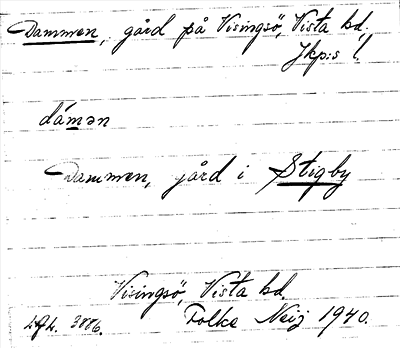 Dammen, gård på Visingsö, Vista hd.
Jkp:s l.
dámən
Dammen, gård i Stigby
Visingsö, Vista hd.
Folke Neij 1940.
3006.